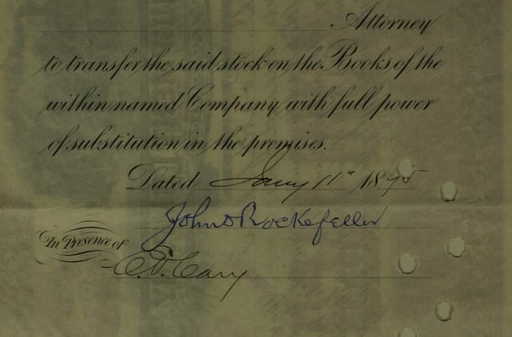 Attorney
to transfer the said stock on the Books of the
within named Company with full power
of substitution in the premises.
Dated Jany 11th 1895
John D Rockefeller
In Presence of
C. T. Cary